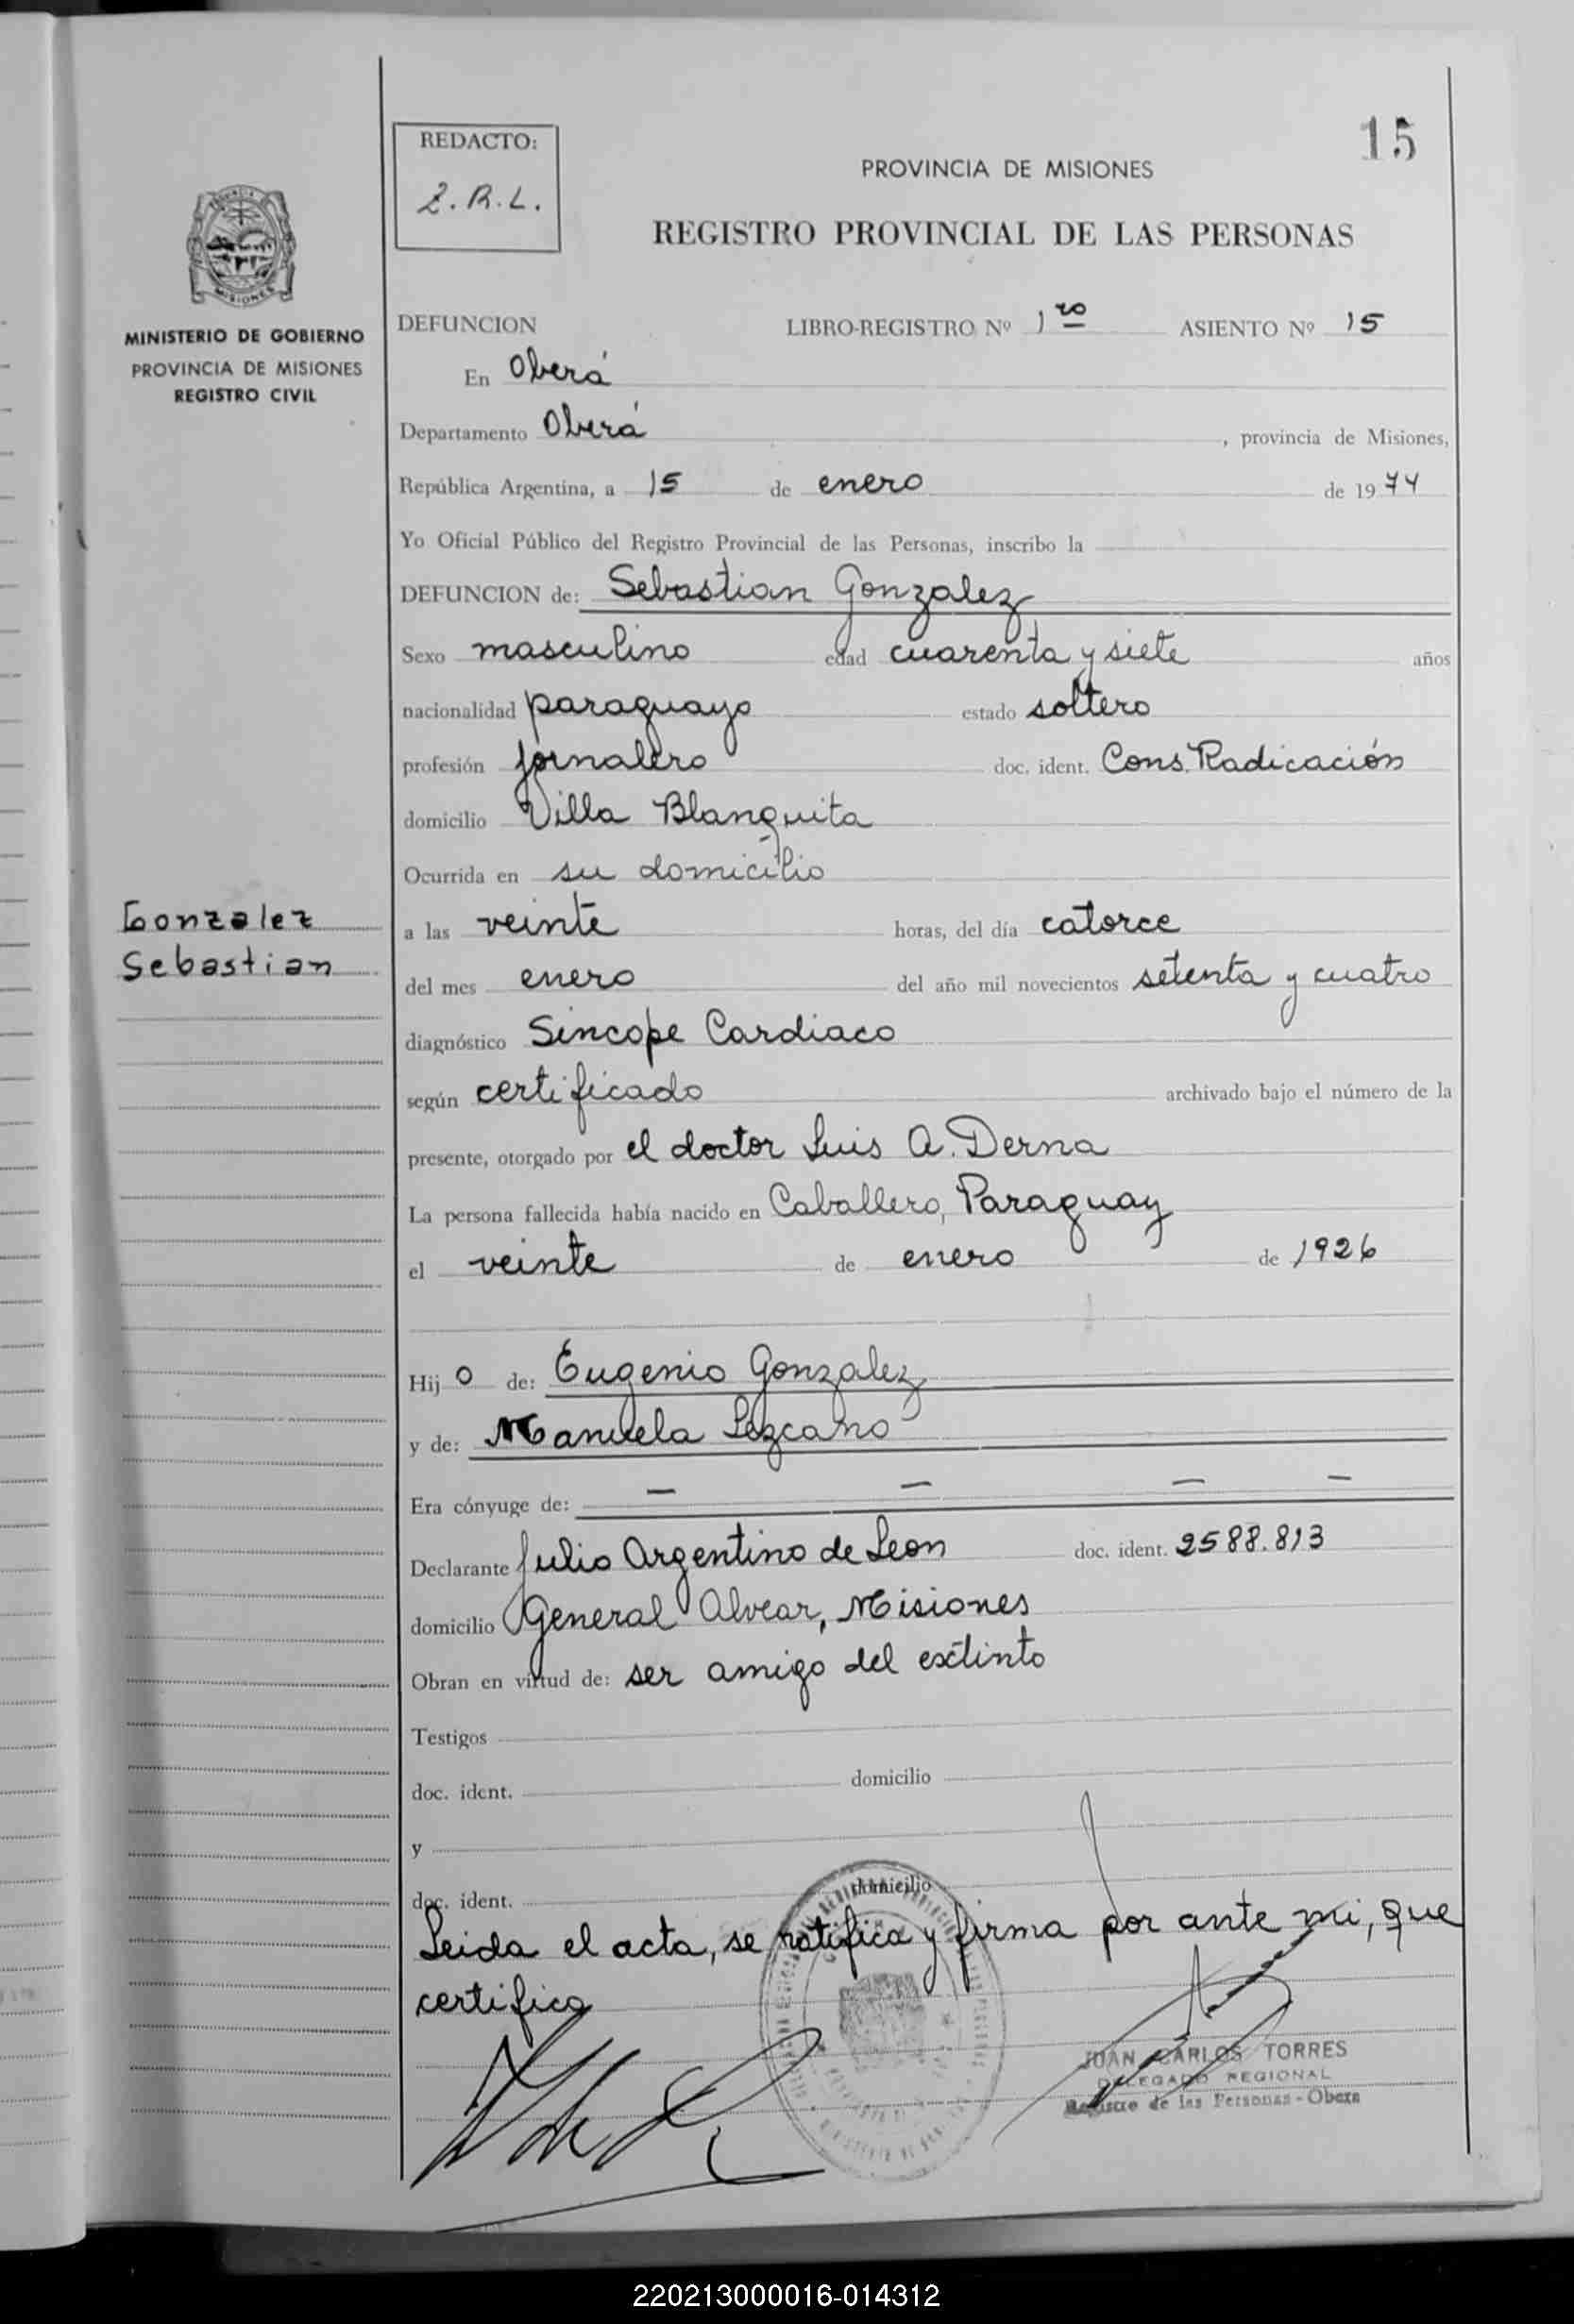 15
REDACTO:
Z.R.L.
PROVINCIA DE MISIONES
REGISTRO PROVINCIAL DE LAS PERSONAS
MISIONES
MINISTERIO DE GOBIERNO
PROVINCIA DE MISIONES
REGISTRO CIVIL
DEFUNCION LIBRO-REGISTRO Nº 1ro ASIENTO Nº 15
En Oberá
Departamento Oberá, provincia de Misiones,
República Argentina, a 15 de enero de 1974
Yo Oficial Público del Registro Provincial de las Personas, inscribo la
DEFUNCION de: Sebastian Gonzalez
Sexo masculino edad cuarenta y siete años
nacionalidad paraguayo estado soltero
profesión jornalero doc. ident. Cons. Radicación
domicilio Villa Blanquita
Ocurrida en su domicilio
Gonzalez
Sebastian
a las veinte horas, del día catorce
del mes enero del año mil novecientos setenta y cuatro
diagnóstico Sincope Cardiaco
según certificado archivado bajo el número de la
presente, otorgado por el doctor Luis A. Derna
La persona fallecida había nacido en Caballero, Paraguay
el veinte de enero de 1926
Hijo de: Eugenio Gonzalez
y de: Manuela Lezcano
Era cónyuge de: — — — —
Declarante Julio Argentino de Leon doc. ident. 2588.813
domicilio General Alvear, Misiones
Obran en virtud de: ser amigo del extinto
Testigos
doc. ident. domicilio
y
doc. ident. domicilio
Leida el acta, se ratifica y firma por ante mi, que
certifico
JUAN CARLOS TORRES
DELEGADO REGIONAL
Registro de las Personas - Obera
220213000016-014312